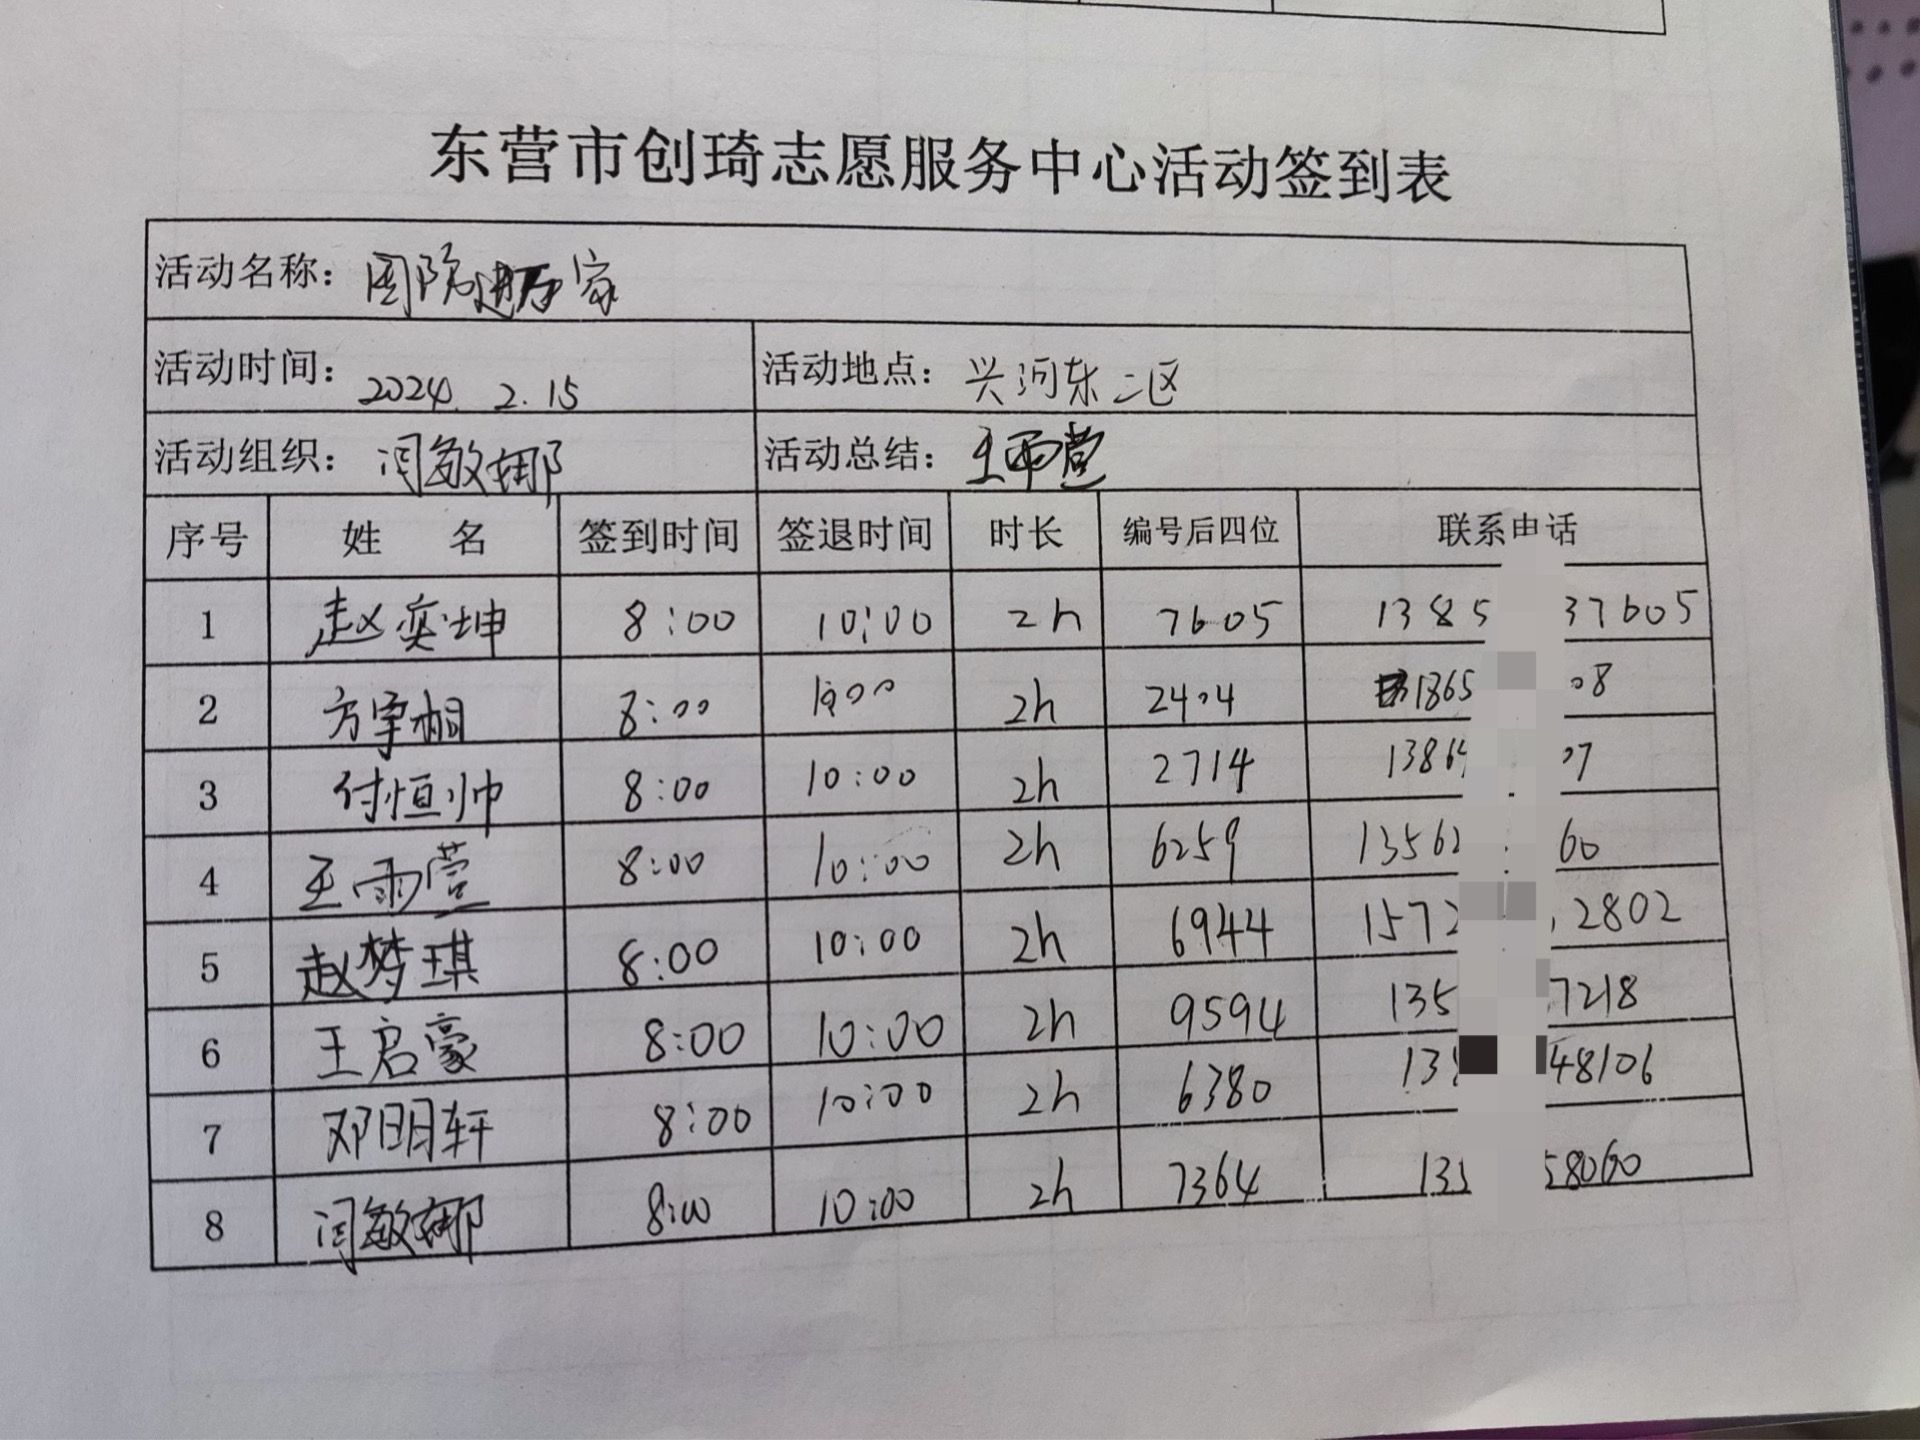 东营市创琦志愿服务中心活动签到表
活动名称： 国防进万家
活动时间： 2024. 2. 15 活动地点： 兴河东二区
活动组织： 闫敏娜 活动总结： 王雨萱
序号 姓 名 签到时间 签退时间 时长 编号后四位 联系电话
1 赵奕坤 8:00 10:00 2h 7605 1385 37605
2 方宇桐 8:00 10:00 2h 2404 1865 08
3 付恒帅 8:00 10:00 2h 2714 1386 07
4 王雨萱 8:00 10:00 2h 6259 13562 60
5 赵梦琪 8:00 10:00 2h 6944 1572 2802
6 王启豪 8:00 10:00 2h 9594 135 7218
7 邓明轩 8:00 10:00 2h 6380 13 48106
8 闫敏娜 8:00 10:00 2h 7364 135 58060